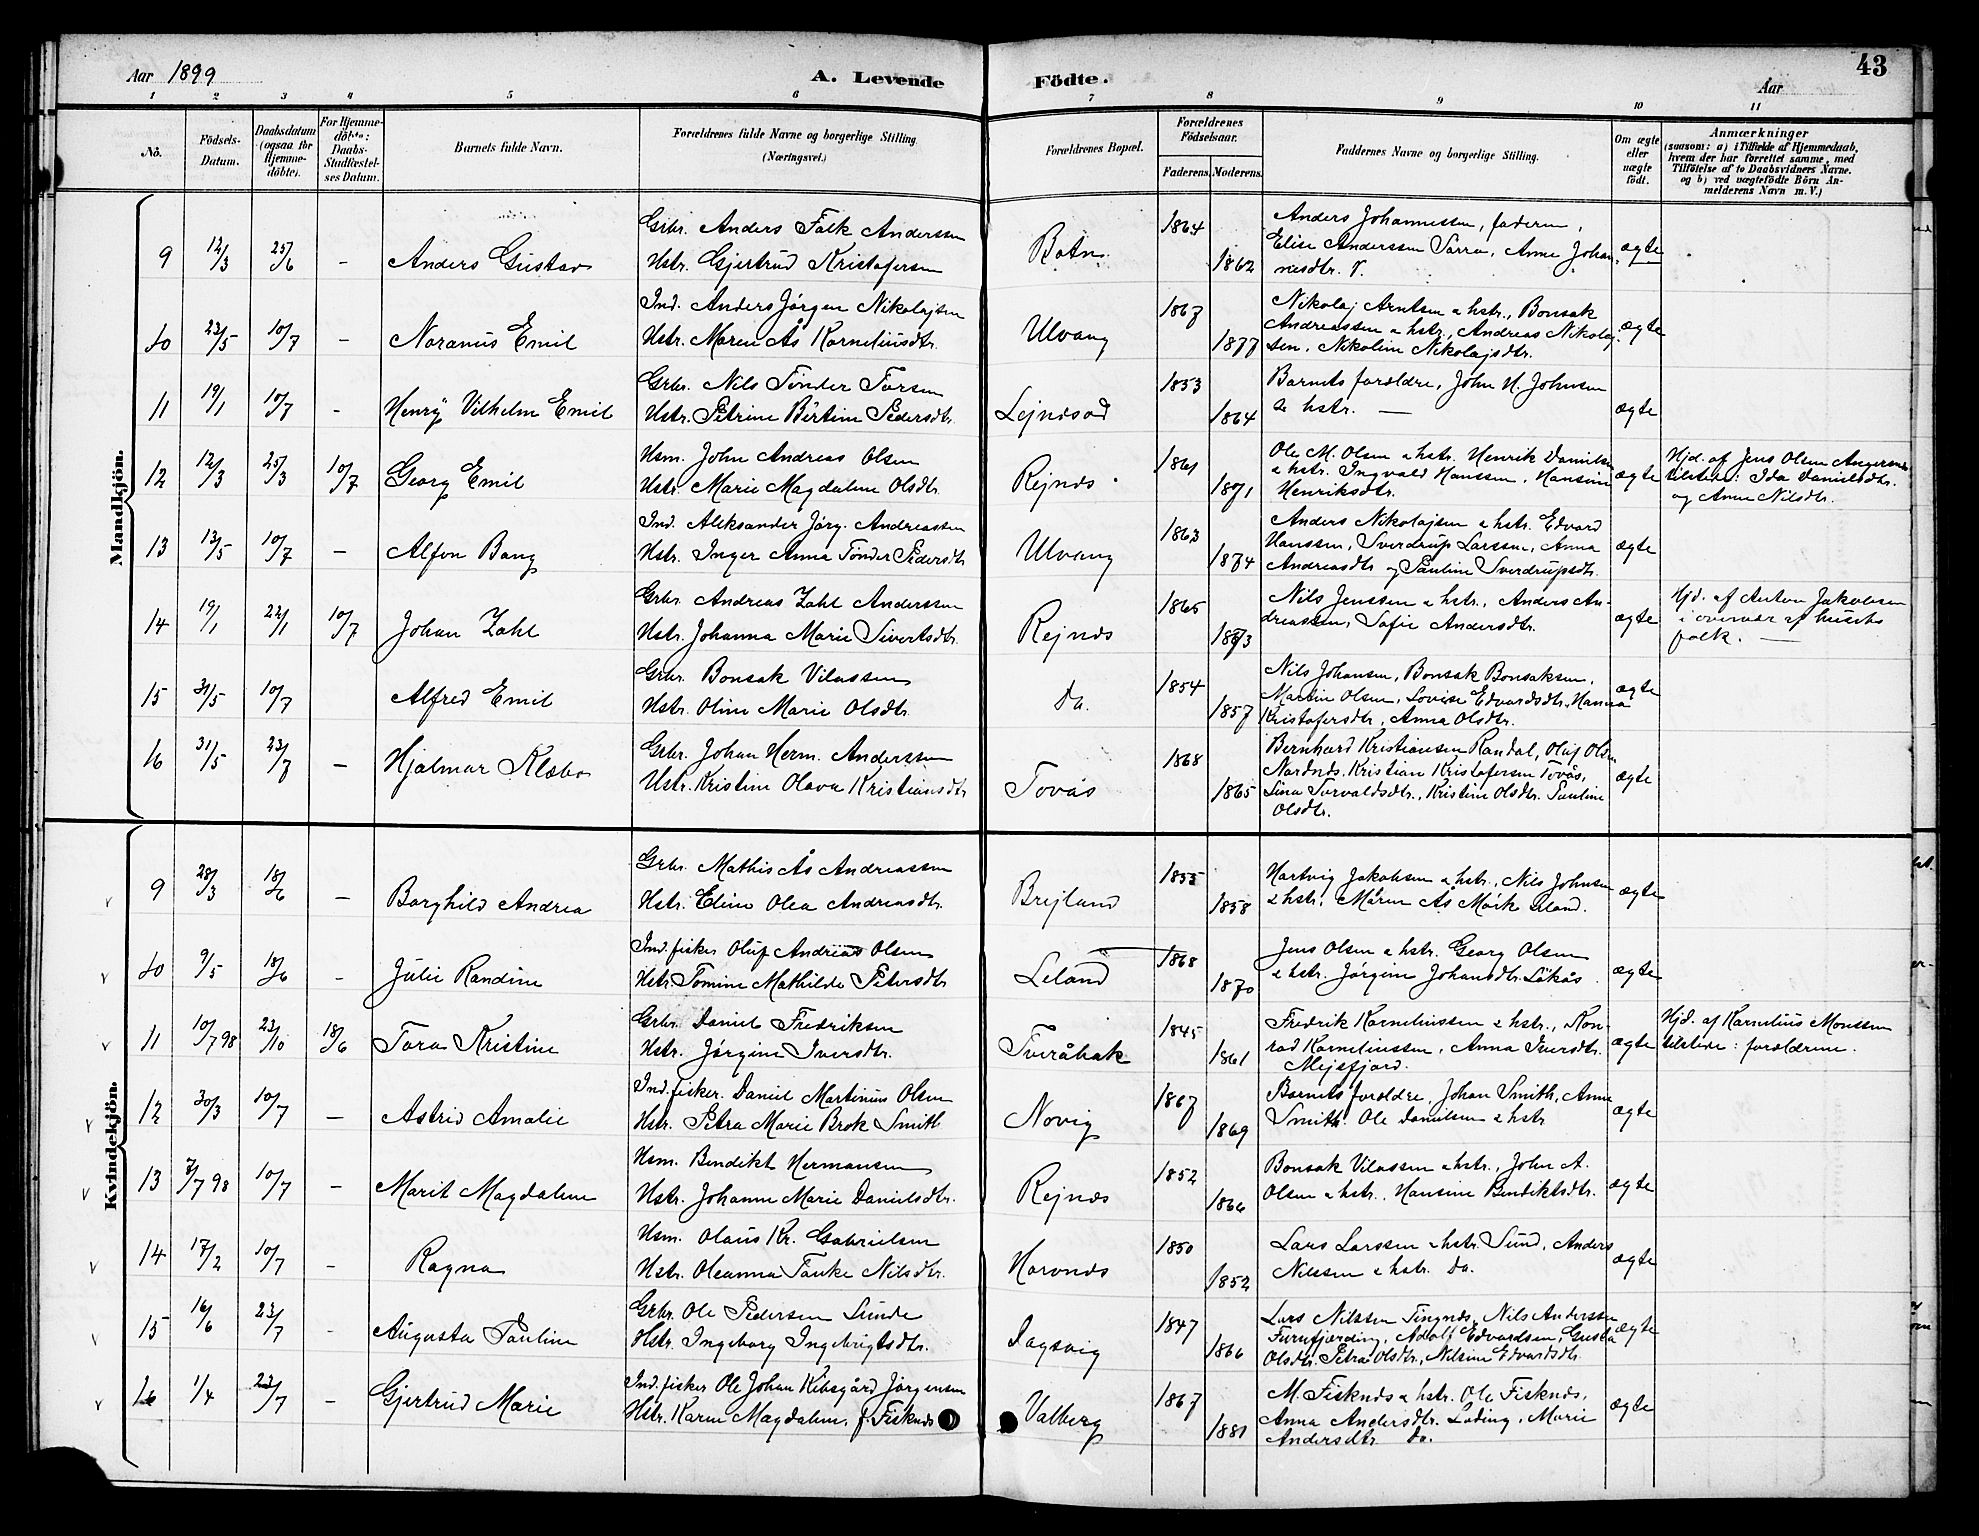 Aar 1899
A. Levende Födte.
43
Aar
1 2 3 4 5 6 7 8 9 10 11
No.
Födsels-Datum.
Daabsdatum (ogsaa for Hjemme-döbte).
For Hjemme-döbte: Daabs-Stadfæstel-ses Datum.
Barnets fulde Navn.
Forældrenes fulde Navne og borgerlige Stilling (Næringsvei.)
Forældrenes Bopæl.
Forældrenes Födselsaar.
Faderens. Moderens.
Faddernes Navne og borgerlige Stilling.
Om ægte eller uægte födt.
Anmærkninger
(saasom: a) i Tilfælde af Hjemmedaab,
hvem der har forrettet samme, med
Tilföielse af to Daabsvidners Navne.
og b) ved uægtefödte Börn An-
melderens Navn m. V.)
Mandkjön.
Grbr. Anders Falk Anderssen
9 12/3 25/6 - Anders Gustav Hstr. Gjertrud Kristofersen
Botn 1864 1862
Anders Johannessen, faderen,
Elise Anderssen Sarra, Anne Johan-
nesdtr. ægte
Ind. Anders Jørgen Nikolajsen
10 23/5 10/7 - Noranus Emil Hstr. Maren Ås Kornelinsdtr.
Ulvang 1867 1877
Nikolaj Arntsen & hstr., Bonsak
Andreassen & hstr., Andreas Nikolaj-
sen, Nikoline Nikolajsdtr. ægte
Grbr. Nils Tönder Torsen
11 19/1 10/7 - Henry Vilhelm Emil Hstr. Petrine Bertine Pedersdtr.
Lejndsod 1853 1864
Barnets forældre, John H. Johnsen
& hstr. — ægte
Hsm. John Andreas Olsen
12 12/3 25/3 10/7 Georg Emil Hstr. Marie Magdalene Olsdtr.
Rejnds 1861 1871
Ole M. Olsen & hstr. Henrik Danielsen
& hstr. Ingvald Hanssen, Hansine
Henriksdtr. ægte
Hjd. af Jens Olsen Angersnes
tilstede: Ida Danielsdtr.
og Anne Nilsdtr.
Ind. Aleksander Jörg. Andreassen
13 13/5 10/7 - Alfon Bang Hstr. Inger Anna Tönder Pedersdtr
Ulvang 1863 1874
Anders Nikolajsen & hstr. Edvard
Hanssen, Sverdrup Larssen, Anna
Andreasdtr og Pauline Sverdrupsdtr. ægte
Grbr. Andreas Zahl Anderssen
14 19/1 22/1 10/7 Johan Zahl Hstr. Johanna Marie Sivertsdtr.
Rejnds 1865 1873
Nils Jenssen & hstr., Anders An-
dreassen, Sofie Andersdtr. ægte
Hjd. af Anton Jakobsen
i overvær af husets
folk. —
Grbr. Bonsak Vilassen
15 31/5 10/7 Alfred Emil Hstr. Oline Marie Olsdtr.
Do. 1854 1857
Nils Johansen, Bonsak Bonsaksen,
Martin Olsen, Lovise Edvardsdtr. Hanna
Kristofersdtr, Anna Olsdtr. ægte
Grbr. Johan Herm. Anderssen
16 31/5 23/7 - Hjalmar Klæbo Hstr. Kristine Olava Kristiansdtr
Tovås 1868 1865
Bernhard Kristiansen Randal, Oluf Olsen
Nordnds. Kristian Kristofersen Tovås,
Lina Torvaldsdtr., Kristine Olsdtr. Pauline
Olsdtr. ægte
Kvindekjön.
Grbr. Mathis Ås Andreassen
9 28/3 18/6 - Borghild Andrea Hstr. Eline Olea Andreasdtr.
Brejland 1855 1858
Hartvig Jakobsen & hstr., Nils Johnsen
& hstr, Måren Ås Mörk Leland. ægte
Ind. fisker Oluf Andreas Olsen
10 9/5 18/6 - Julie Randine Hstr. Tomine Mathilde Petersdtr
Leland 1868 1870
Jens Olsen & hstr. Georg Olsen
& hstr. Jörgine Johansdtr. Lökås ægte
Grbr. Daniel Fredriksen
11 10/7 98 23/10 18/6 Tora Kristine Hstr. Jörgine Iversdtr.
Tveråbak 1845 1861
Fredrik Kornelinssen & hstr., Kon-
rad Kornelinssen, Anna Iversdtr.
Mejsfjord. ægte
Hjd. af Kornelius Monssen
tilstede: forældrene.
Ind. fisker. Daniel Martinius Olsen
12 30/3 10/7 - Astrid Amalie Hstr. Petra Marie Brok Smith
Novig 1867 1869
Barnets forældre, Johan Smith, Anne
Smith. Ole Danielsen & hstr ægte
Hsm. Bendikt Hermansen
13 7/7 98 10/7 - Marit Magdalene Hstr. Johanne Marie Danielsdtr.
Rejnds 1852 1866
Bonsak Vilassen & hstr., John A.
Olsen & hstr., Hansine Bendiktsdtr. ægte
Hsm. Olaus Kr. Gabrielsen
14 17/2 10/7 - Ragna Hstr. Oleanna Tanke Nilsdtr.
Horvnds 1850 1852
Lars Larssen & hstr. Sund, Anders
Nilssen & hstr. Do. ægte
Grbr. Ole Pedersen Sunde
15 16/6 23/7 - Augusta Pauline Hstr. Ingeborg Ingebrigtsdtr.
Dagsvig 1847 1866
Lars Nilssen Tingnds, Nils Anderssen
Furufjærding, Adolf Edvardsen, Gusta
Olsdtr. Petra Olsdtr, Nilsine Edvardsdtr ægte
Ind. fisker Ole Johan Kibsgård Jörgensen
16 1/4 23/7 - Gjertrud Marie Hstr. Karen Magdalene, f. Fisknds
Valberg 1867 1881
M. Fisknds & hstr. Ole Fisknds,
Anna Andersdtr. Lading, Marie
Andersdtr Do. ægte